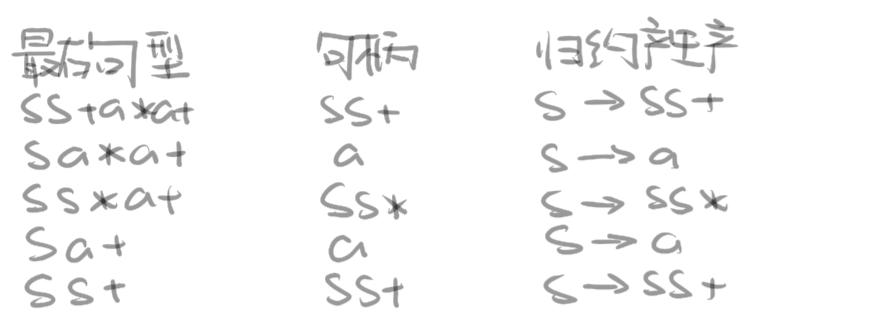 最右句型 句柄 归约产生产
SS+a*a+ SS+ S → SS+
Sa*a+ a S → a
SS*a+ SS* S → SS*
Sa+ a S → a
SS+ SS+ S → SS+